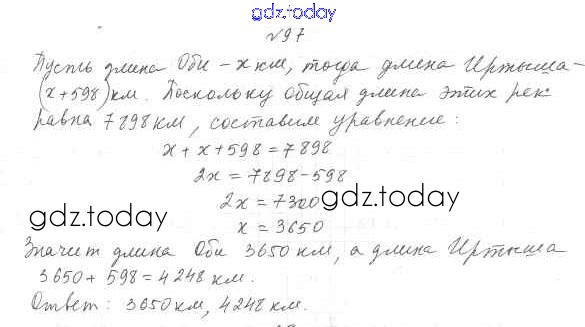 gdz.today
№97
Пусть длина Оби – x км, тогда длина Иртыша –
(x+598) км. Поскольку общая длина этих рек
равна 7898 км, составим уравнение:
x + x + 598 = 7898
2x = 7898 – 598
2x = 7300
gdz.today
gdz.today
x = 3650
Значит длина Оби 3650 км, а длина Иртыша
3650 + 598 = 4248 км.
Ответ: 3650 км, 4248 км.